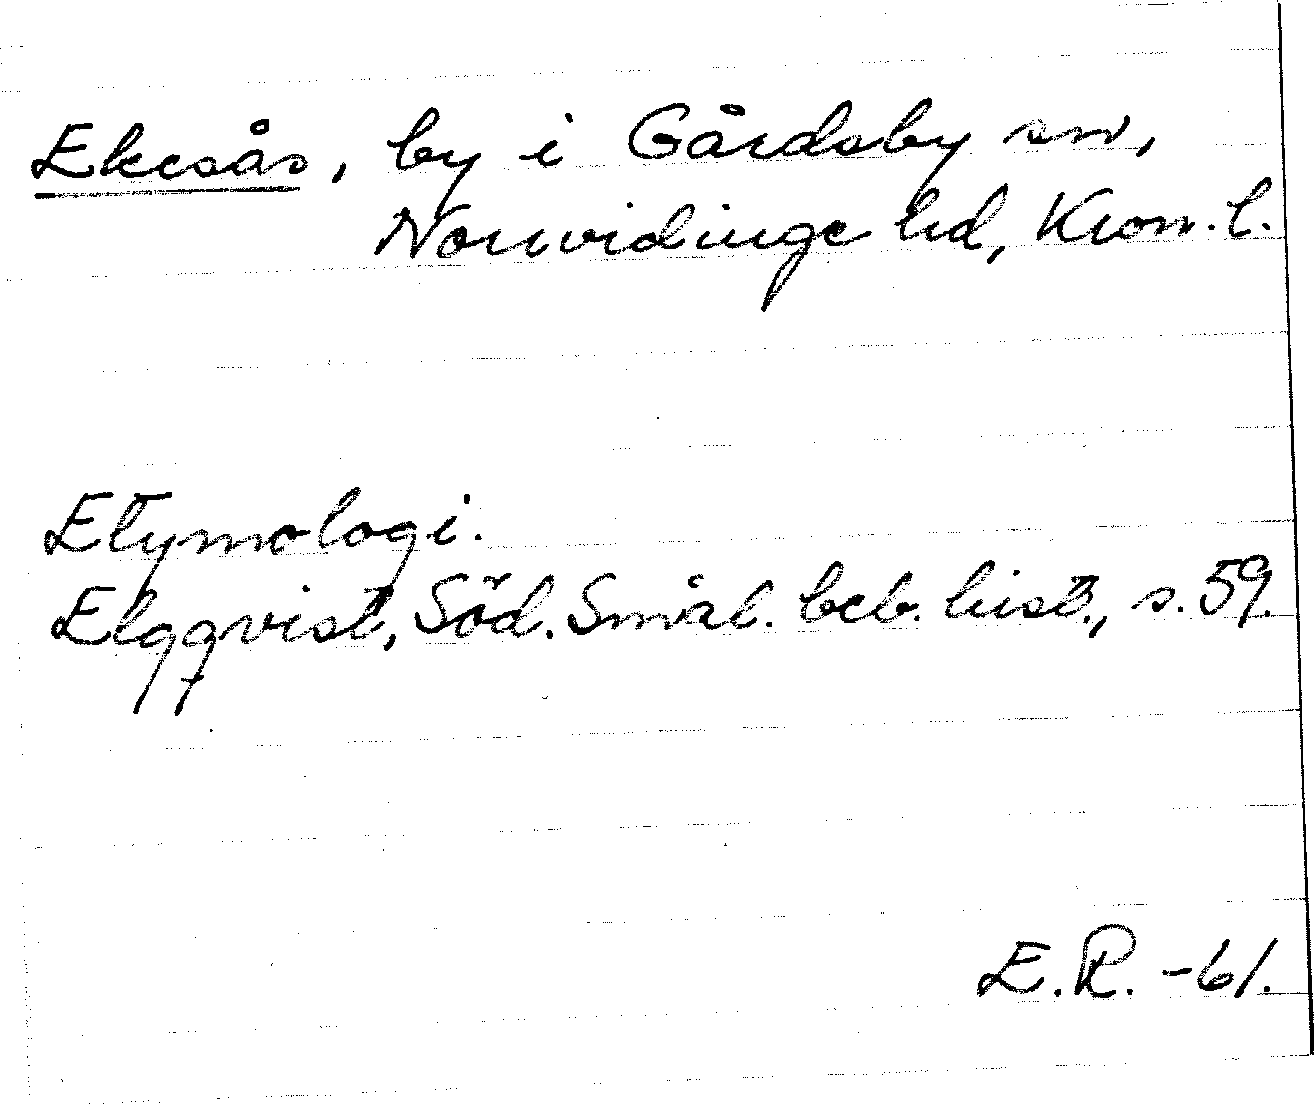 Ekesås, by i Gårdsby sn,
Norrvidinge hd, Kron. l.
Etymologi.
Elgqvist, Söd. Smål. beb. hist., s. 59.
E.R. -61.